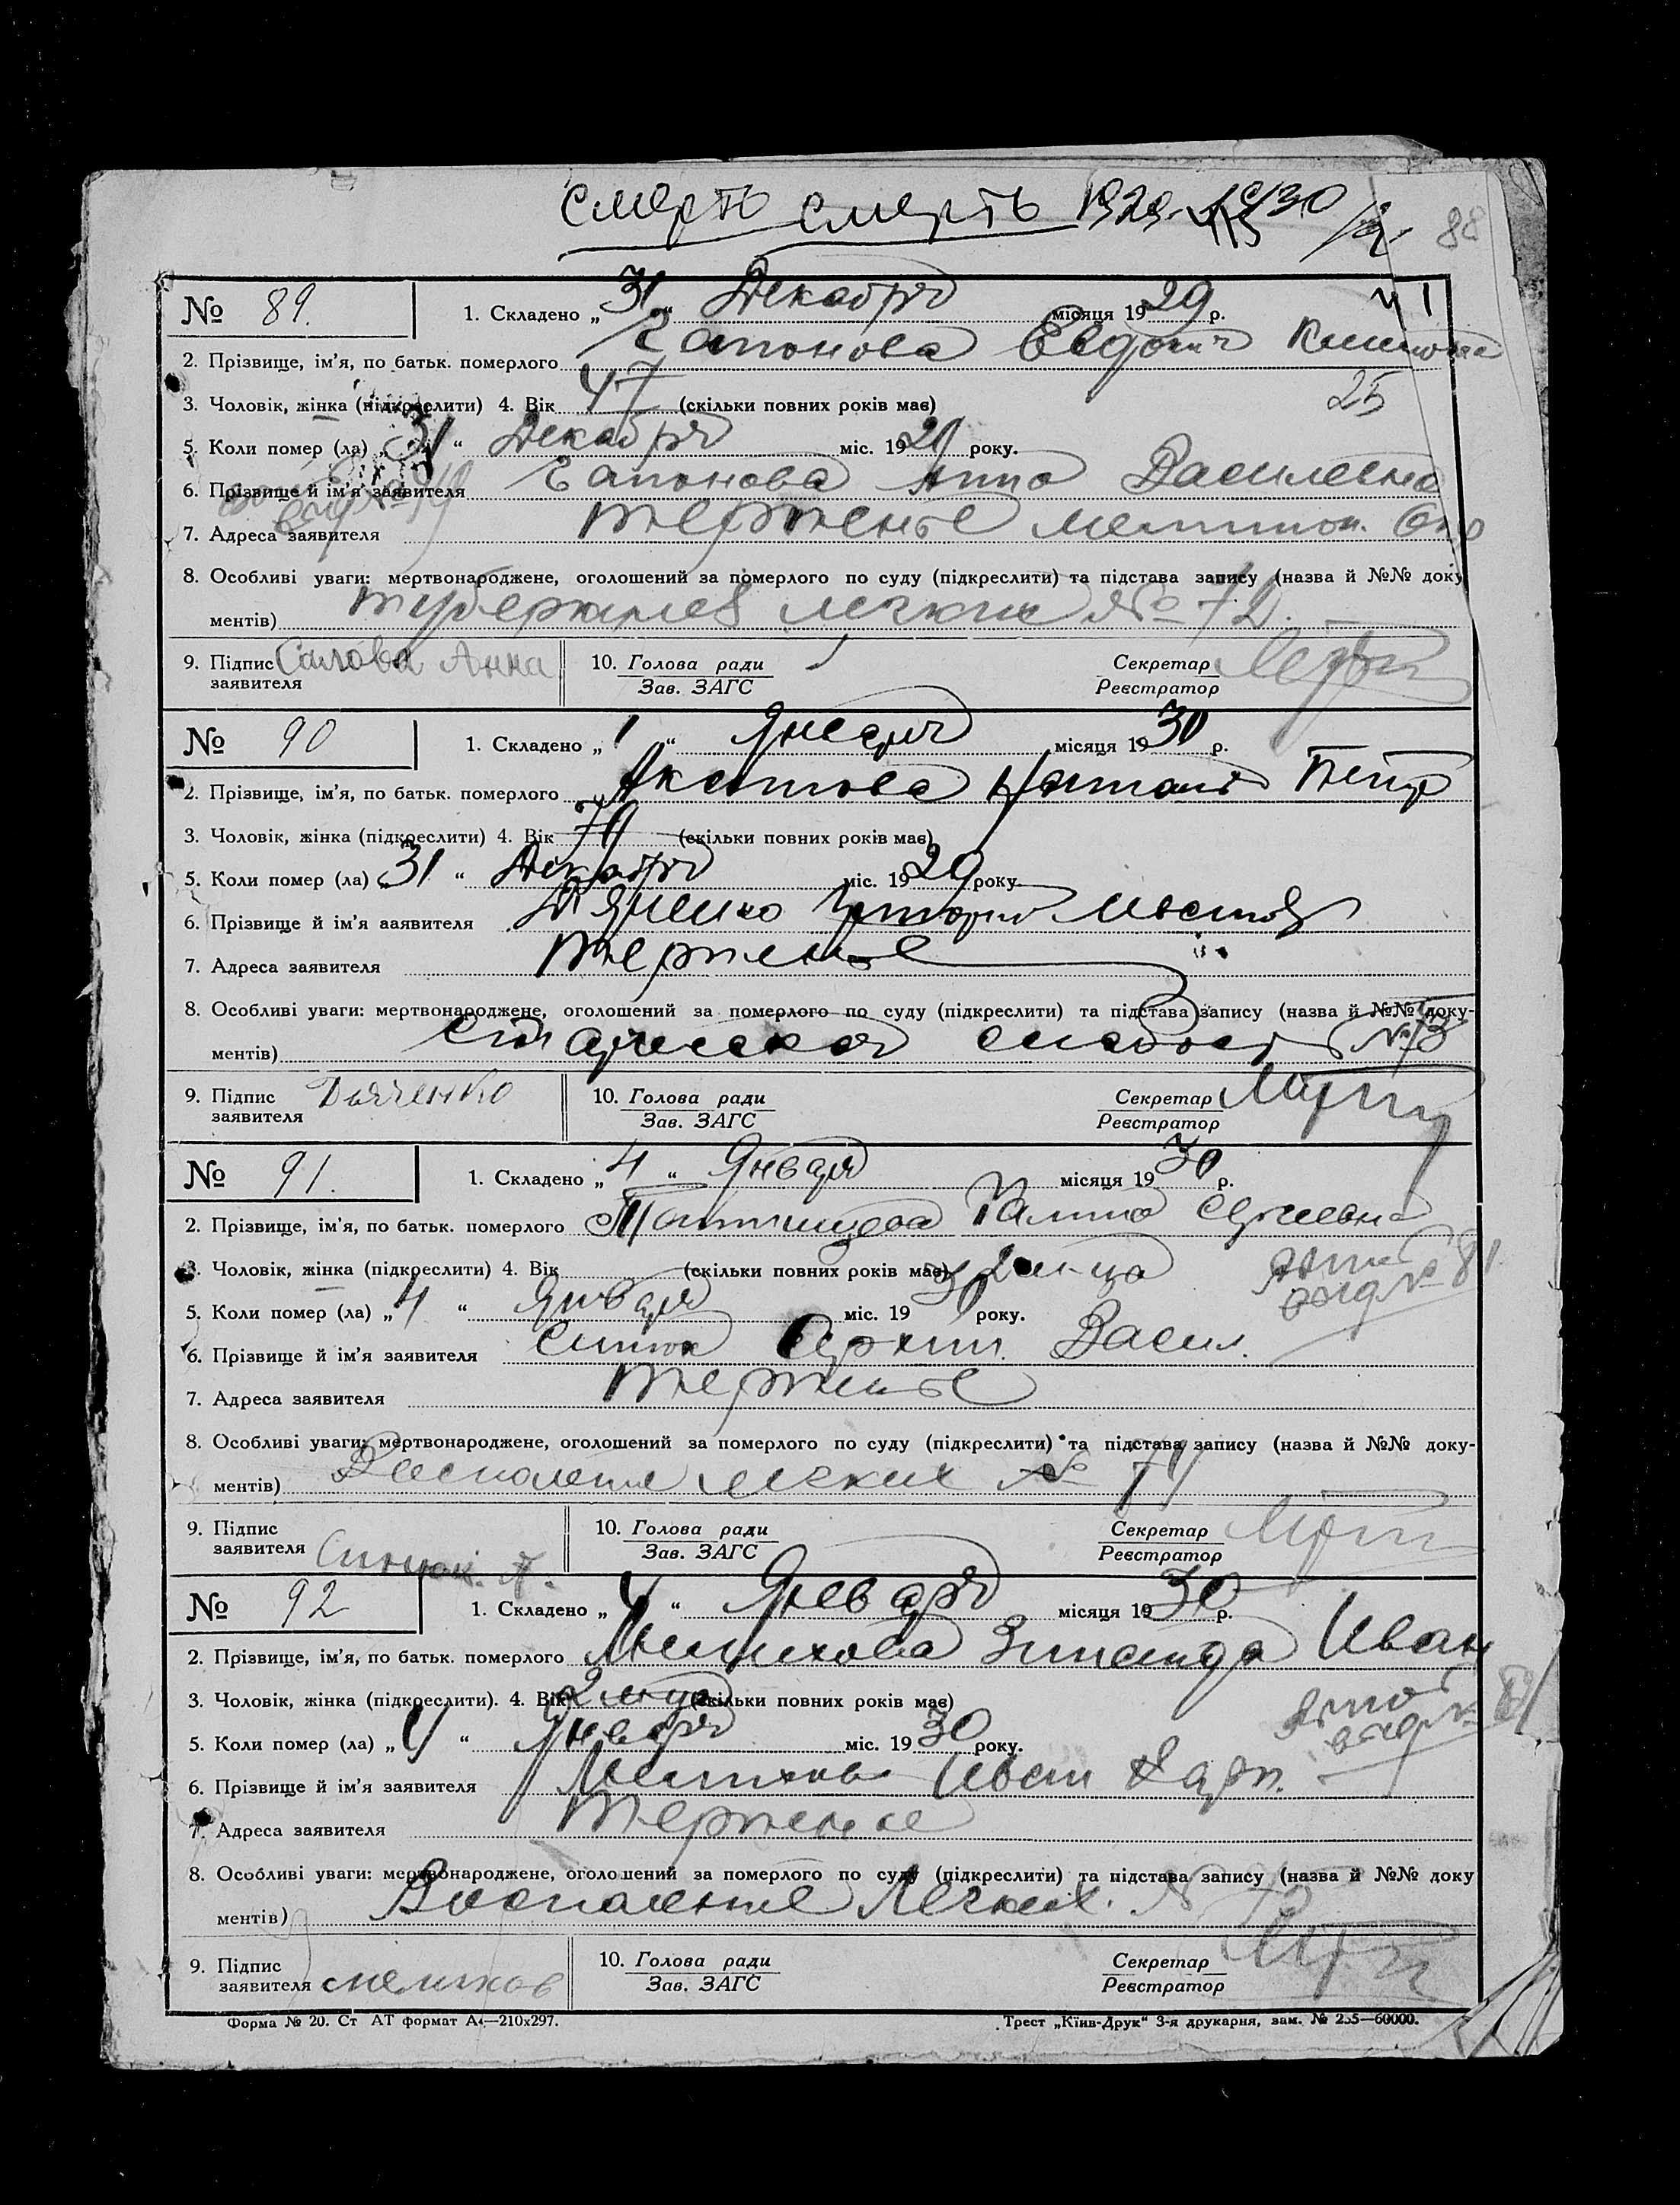 смерть смерть 1929-1930
88
№ 89. 1. Складено „31“ Декабря місяця 1929 р.
2. Прізвище, ім'я, по батьк. померлого Гапонова
25
3. Чоловік, жінка (підкреслити) 4. Вік 47 (скільки повних років має)
5. Коли помер (ла) „31“ Декабря міс. 19 року.
6. Прізвище й ім'я заявителя Гапонова Анна Василевна
7. Адреса заявителя Терпенье
8. Особливі уваги: мертвонароджене, оголошений за померлого по суду (підкреслити) та підстава запису (назва й №№ доку
ментів) туберкулез легких № 72.
9. Підпис заявителя Анна 10. Голова ради Зав. ЗАГС Секретар Реєстратор
№ 90 1. Складено „1“ Января місяця 1930 р.
2. Прізвище, ім'я, по батьк. померлого Петр
3. Чоловік, жінка (підкреслити) 4. Вік (скільки повних років має)
5. Коли помер (ла) „31“ Декабря міс. 1929 року.
6. Прізвище й ім'я заявителя
7. Адреса заявителя Терпенье
8. Особливі уваги: мертвонароджене, оголошений за померлого по суду (підкреслити) та підстава запису (назва й №№ доку-
ментів) старческая слабость № 73
9. Підпис заявителя Дяченко 10. Голова ради Зав. ЗАГС Секретар Реєстратор
№ 91. 1. Складено „4“ Января місяця 1930 р.
2. Прізвище, ім'я, по батьк. померлого Галина
3. Чоловік, жінка (підкреслити) 4. Вік (скільки повних років має) 2 м-ца
5. Коли помер (ла) „4“ Января міс. 1930 року.
6. Прізвище й ім'я заявителя Васил.
7. Адреса заявителя Терпенье
8. Особливі уваги: мертвонароджене, оголошений за померлого по суду (підкреслити) та підстава запису (назва й №№ доку-
ментів) Воспаление легких № 74
9. Підпис заявителя 10. Голова ради Зав. ЗАГС Секретар Реєстратор
№ 92 1. Складено „4“ Января місяця 1930 р.
2. Прізвище, ім'я, по батьк. померлого Мелихова Зинаида Иван
3. Чоловік, жінка (підкреслити). 4. Вік 2 м-ца (скільки повних років має)
5. Коли помер (ла) „4“ Января міс. 1930 року.
6. Прізвище й ім'я заявителя Мелихов Иван
7. Адреса заявителя Терпенье
8. Особливі уваги: мертвонароджене, оголошений за померлого по суду (підкреслити) та підстава запису (назва й №№ доку
ментів) Воспаление Легких.
9. Підпис заявителя Мелихов 10. Голова ради Зав. ЗАГС Секретар Реєстратор
Форма № 20. Ст АТ формат А4—210x297. Трест „Київ-Друк“ 3-я друкарня, зам. № 255—60000.